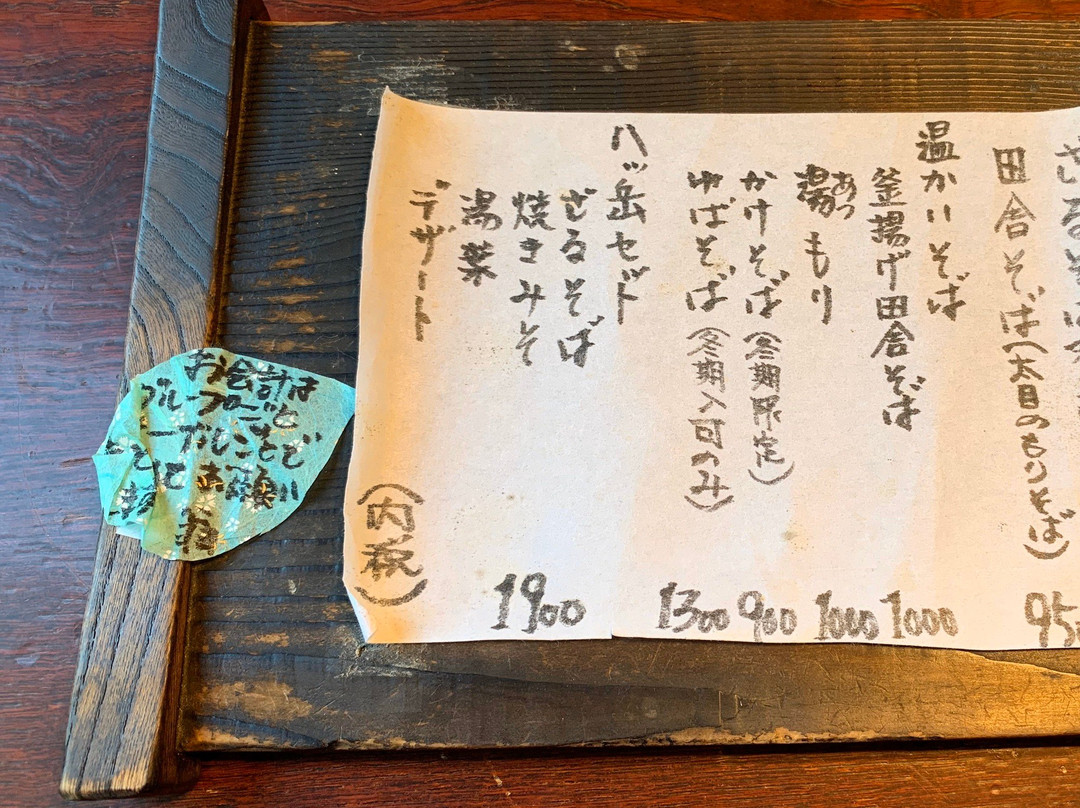 田舎そば(太目のもりそば)
950
温かいそば
釜揚げ田舎そば
1000
あつ
湯もり
1000
かけそば(冬期限定)
900
ゆばそば(冬期入可のみ)
1300
八ッ岳セット
ざるそば
焼きみそ
湯葉
デザート
1900
(内税)
お会計は
グループごと
テーブルごとで
お願い